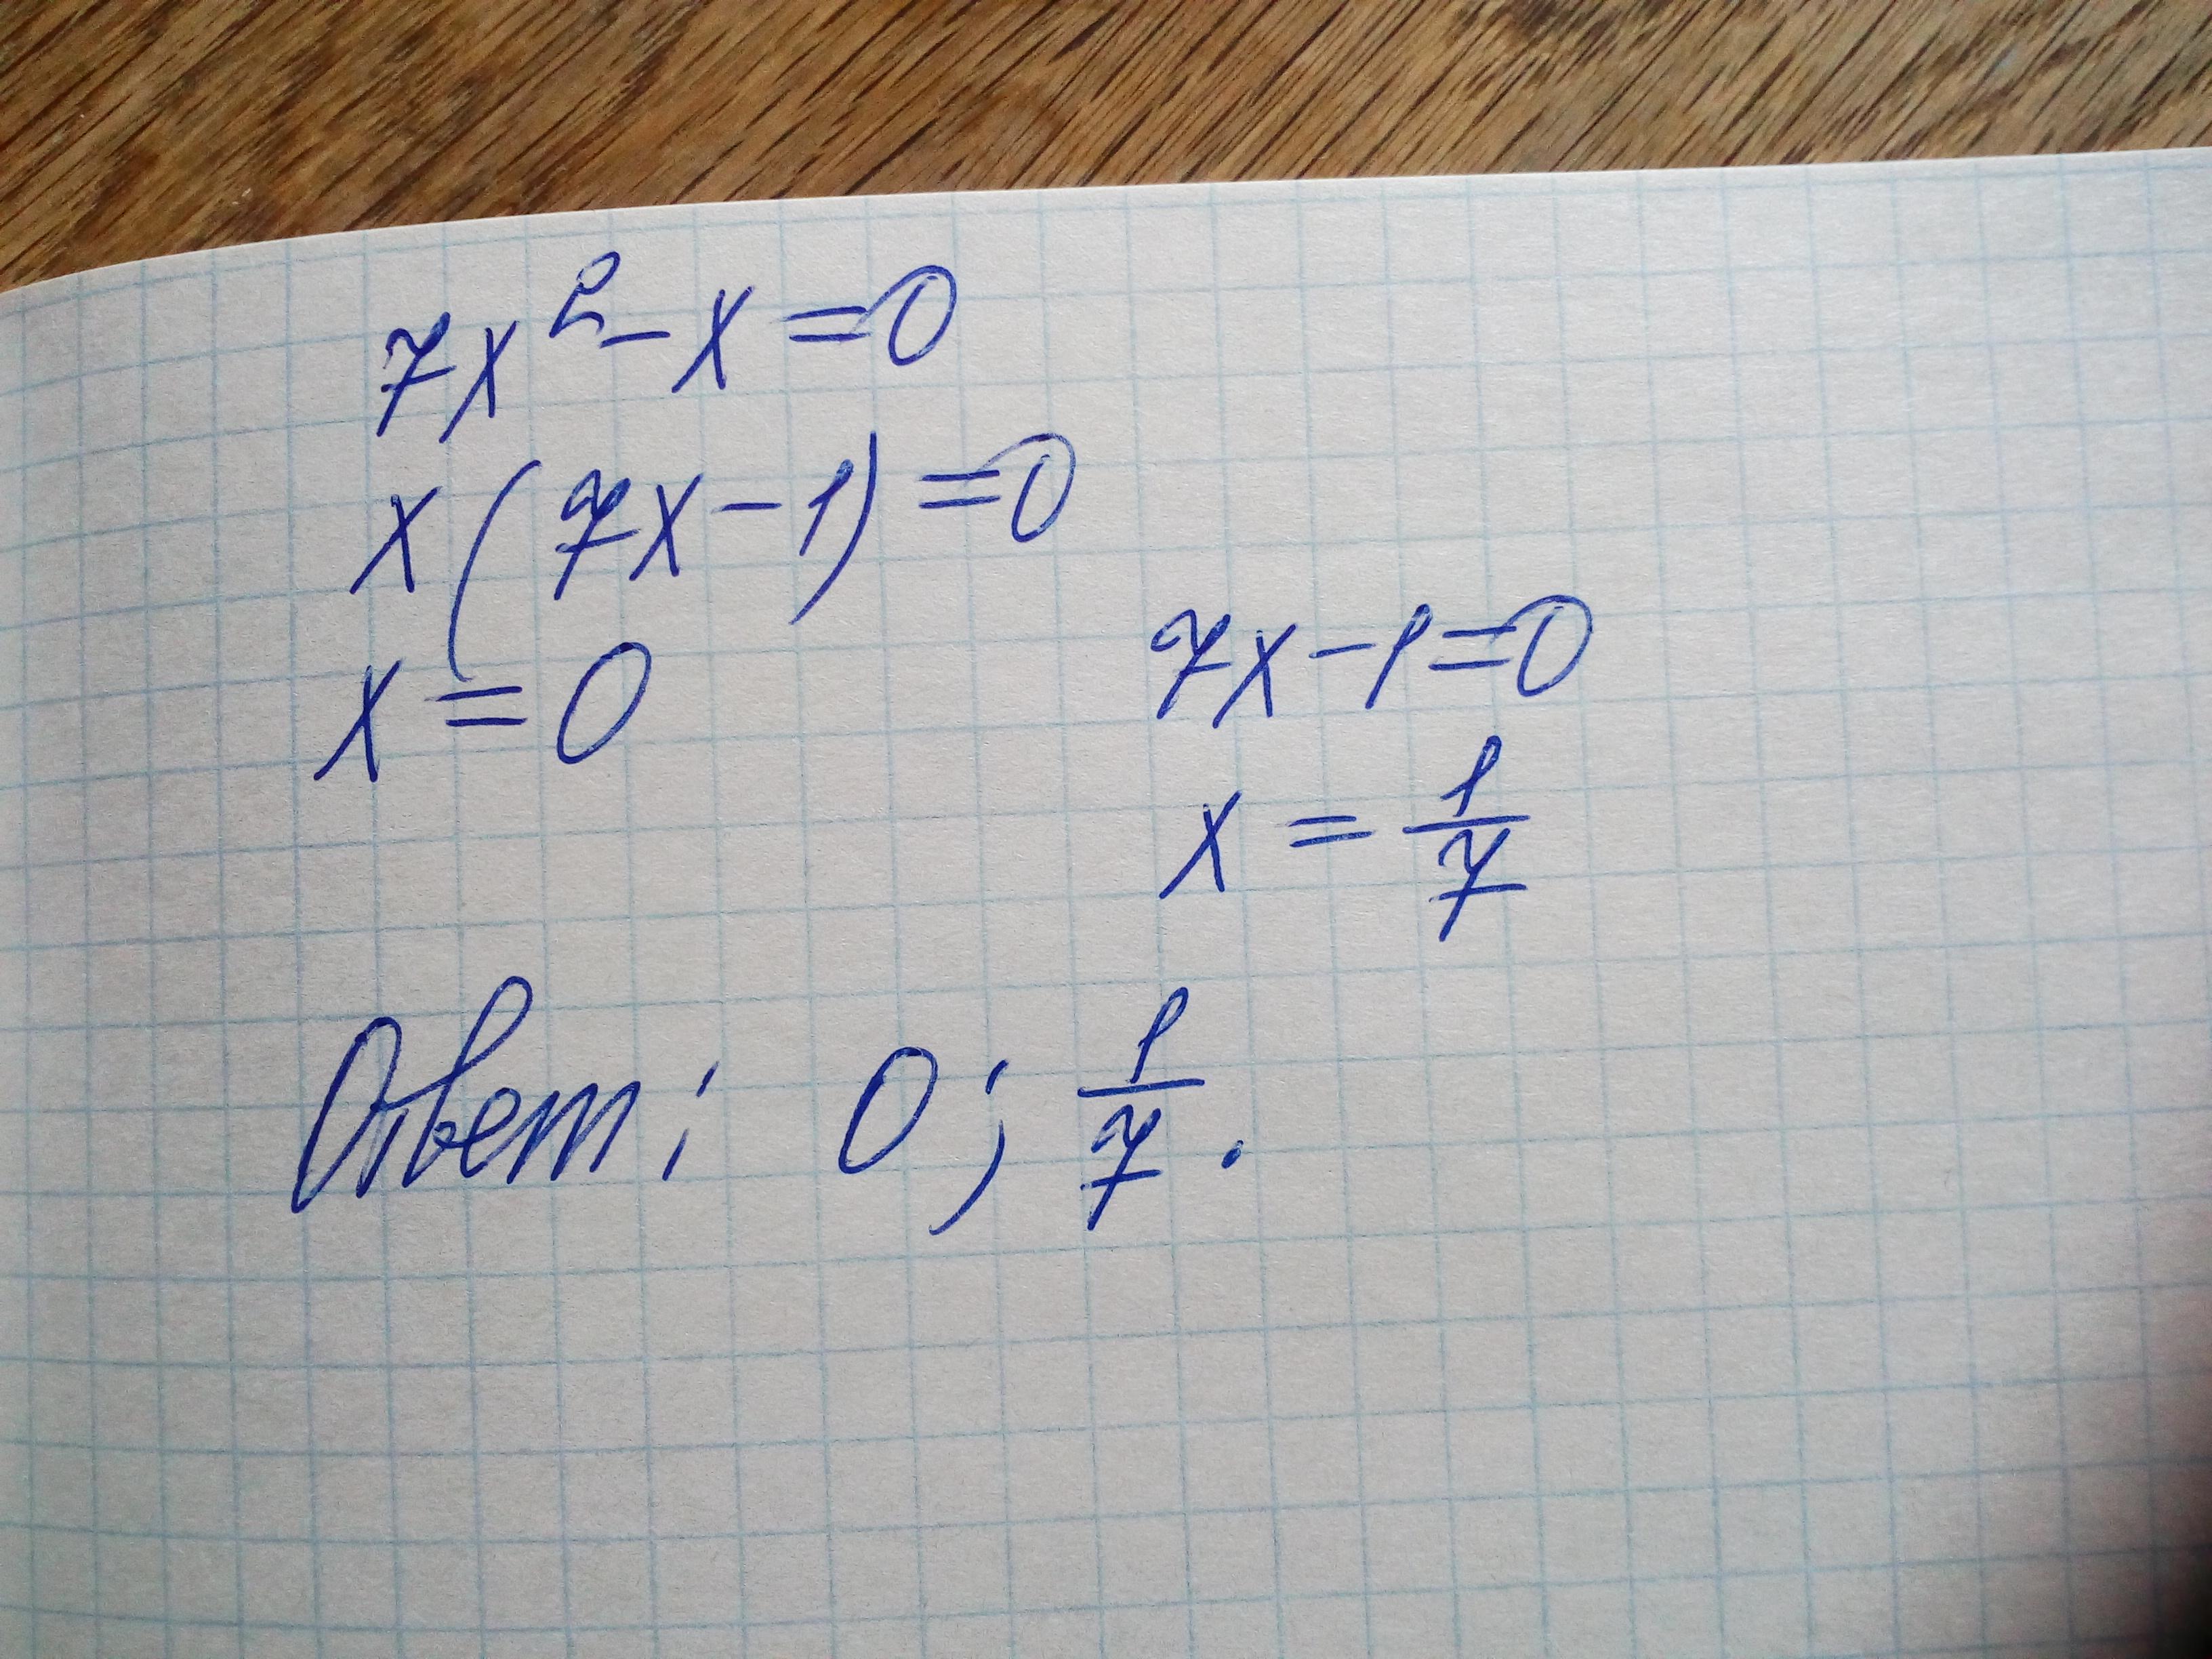 7x² - x = 0
x(7x - 1) = 0
x = 0
7x - 1 = 0
x = 1/7
Ответ: 0; 1/7.